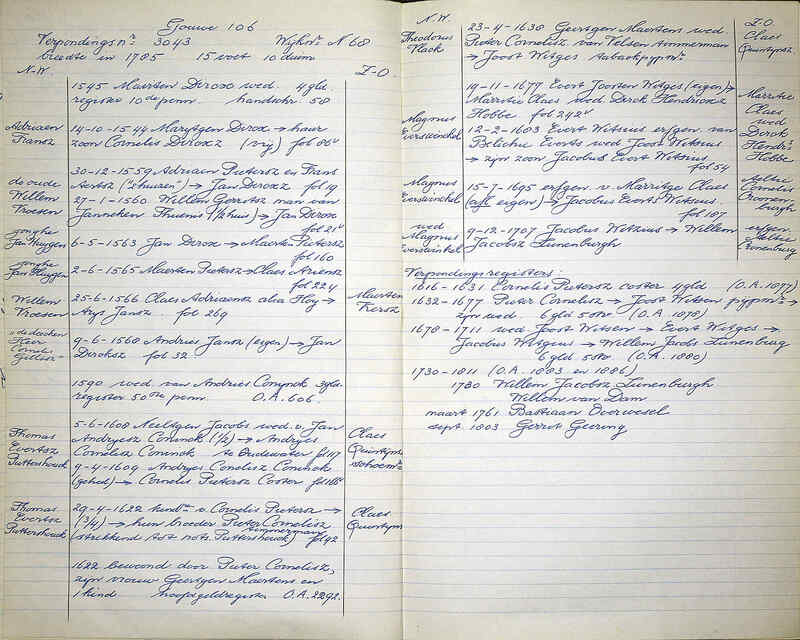 Gouwe 106
Verpondingsnr 3043 Wijknr N 68
breedte in 1785 15 voet 10 duim
N.W. Z-O.
1545 Maerten Dircxz wed. 4 gld.
register 10de penn. handschr. 58
Adriaen
Fransz
14-10-1544 Marytgen Dircx → haar
zoon Cornelis Dircxz (vrij) fol 86v
30-12-1559 Adriaen Pietersz en Frans
Aertsz ("schuren") → Jan Dircxz fol 19
de oude
Willem
Vroesen
27-1-1560 Willem Gerritsz man van
Janneken (½ huis) → Jan Dircxz
fol 21v
jonghe
Jan Huygen
6-5-1563 Jan Dircx → Maerten Pietersz
fol 160
jonghe
Jan Huygen
2-6-1565 Maerten Pietersz → Claes Ariensz
fol 224
Willem
Vroesen
25-6-1566 Claes Adriaensz alias →
Arys Jansz. fol 269
Maerten
9-6-1568 Andries Jansz (eigen) → Jan
Dircksz fol 32
1590 wed van Andries Coninck 3 gld.
register 50ste penn. O.A. 606.
Thomas
Evertsz
Puttershouck
5-6-1608 Neeltgen Jacobs wed. v. Jan
Andryesz Coninck (½) → Andryes
Cornelisz Coninck te Oudewater fol 117
Claes
Quintijnsz
schoenmr
9-4-1609 Andryes Cornelisz Coninck
(geheel) → Cornelis Pietersz Coster
Thomas
Evertsz
Puttershouck
29-4-1622 kindn v. Cornelis Pietersz →
(3/4) → hun broeder Pieter Cornelisz
timmerman
(strekkend tot nots Puttershouck) fol 92
Claes
Quintijnsz
1622 bewoond door Pieter Cornelisz,
zijn vrouw Geertgen Maertens en
1 kind hoofdgeldregister O.A. 2292.
N.W. Z-O.
Theodorus
Vlack
23-4-1638 Geertgen Maertens wed.
Pieter Cornelisz van Velsen timmerman
→ Joost Witges tabackpypmr
Claes
Quintijnsz.
19-11-1677 Evert Joosten Witges (eigen) →
Marritie Claes wed. Dirck Hendricxz
Hobbe fol 242v
Marritie
Claes
wed
Dirck
Hendr.
Hobbe
Magnus
Everswinckel
12-2-1683 Evert Witsius erfgen. van
Belichie Everts wed Joost Witsius
→ zijn zoon Jacobus Evert Witsius
fol 54
Magnus
Everswinckel
15-7-1695 erfgen. v. Marritge Claes
(eigen) → Jacobus Everts Witsius.
fol 107
Aeltie
Cornelis
Croonenburgh
wed
Magnus
Everswinckel
9-12-1707 Jacobus Witzius → Willem
Jacobsz Lunenburgh
erfgen.
Aeltie
Cronenburg
Verpondingsregisters:
1616-1631 Cornelis Pietersz coster 4 gld (O.A. 1077)
1632-1677 Pieter Cornelisz → Joost Witsen pypmr →
zijn wed. 6 gld 5 st (O.A. 1078)
1678-1711 wed Joost Witsen → Evert Witges →
Jacobus Witgeus → Willem Jacobs Lunenburg
6 gld 5 st (O.A. 1080)
1730-1811 (O.A. 1083 en 1086)
1730 Willem Jacobsz Lunenburgh
Willem van Dam
maart 1761 Bastiaan Overwesel
sept. 1803 Gerrit Geering